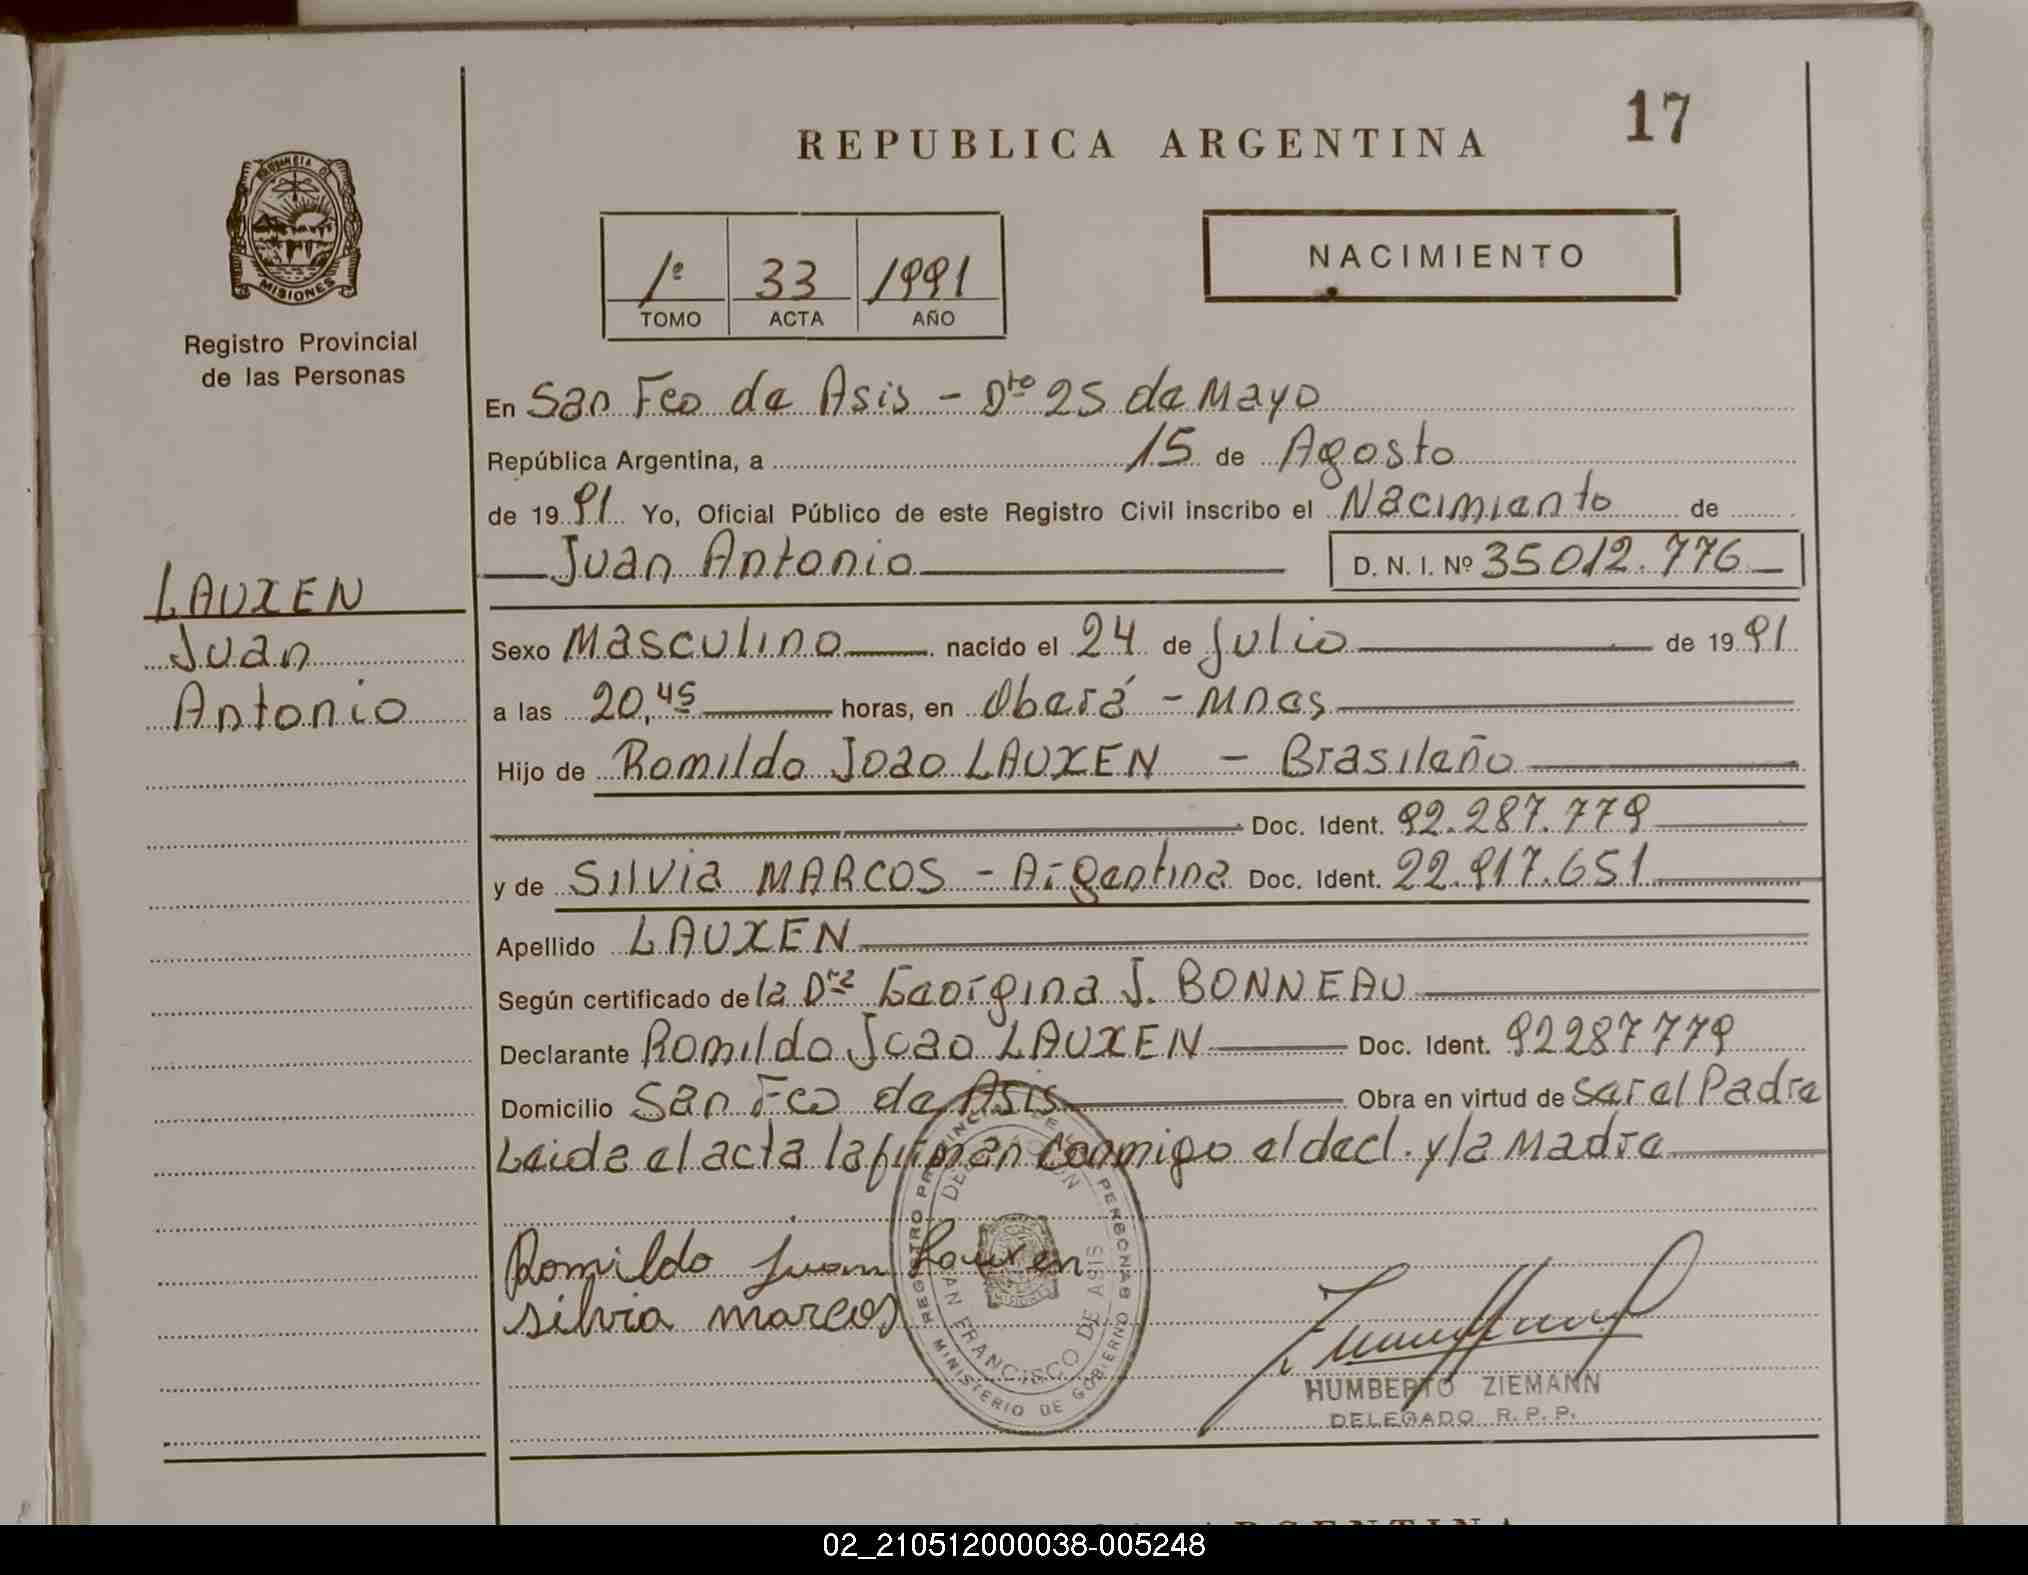 17
REPUBLICA ARGENTINA
PROVINCIA DE
MISIONES
Registro Provincial
de las Personas
1º 33 1991
TOMO ACTA AÑO
NACIMIENTO
En San Fco de Asis - Dto 25 de Mayo
República Argentina, a 15 de Agosto
de 1991 Yo, Oficial Público de este Registro Civil inscribo el Nacimiento de
Juan Antonio D. N. I. Nº 35012.776
LAUXEN
Juan
Antonio
Sexo Masculino nacido el 24 de Julio de 1991
a las 20,45 horas, en Oberá - Mnes
Hijo de Romildo Joao LAUXEN - Brasileño
Doc. Ident. 92.287.779
y de Silvia MARCOS - Argentina Doc. Ident. 22.917.651
Apellido LAUXEN
Según certificado de la Dra Georgina J. BONNEAU
Declarante Romildo Joao LAUXEN Doc. Ident. 92287779
Domicilio San Fco de Asis Obra en virtud de ser el Padre
Leida el acta la firman conmigo el decl. y la Madre
Romildo Juan Lauxen
silvia marcos
REGISTRO PROVINCIAL DE LAS PERSONAS
MINISTERIO DE GOBIERNO
DELEGACION
SAN FRANCISCO DE ASIS
HUMBERTO ZIEMANN
DELEGADO R. P. P.
02_210512000038-005248